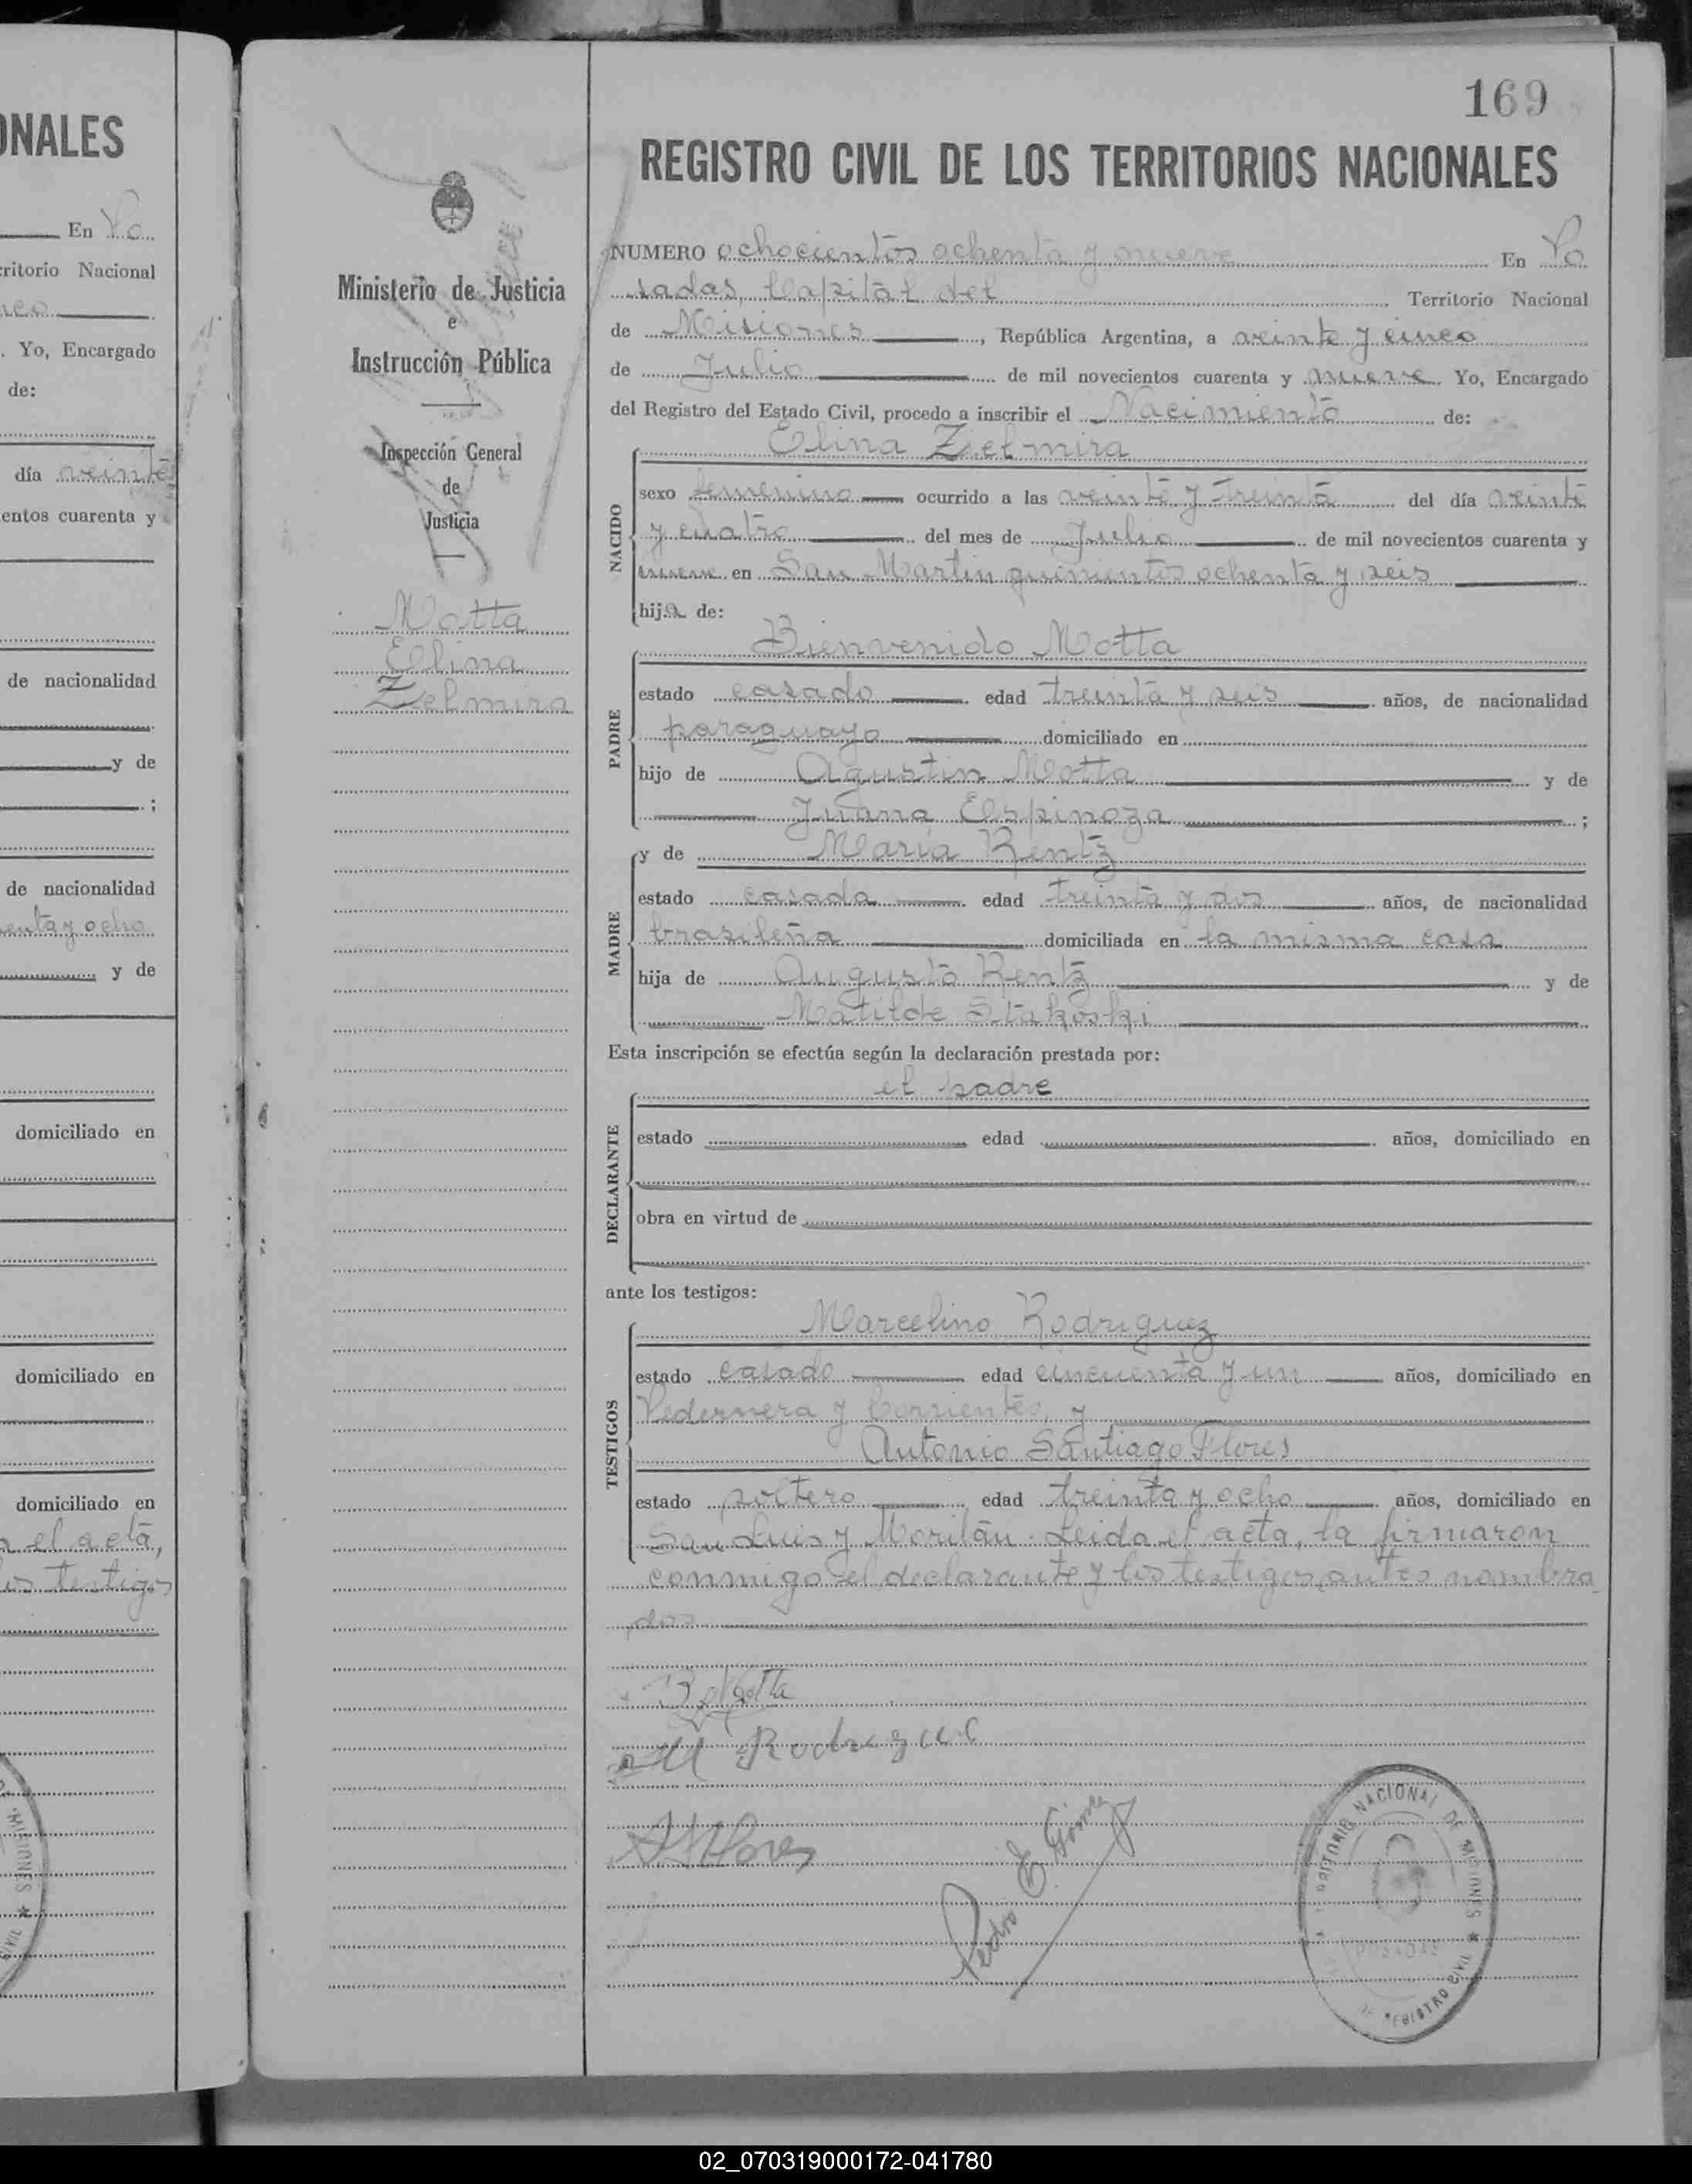 ONALES
En Po
ritorio Nacional
. Yo, Encargado
de:
día veinte
entos cuarenta y
de nacionalidad
y de
;
de nacionalidad
enta y ocho
y de
domiciliado en
domiciliado en
domiciliado en
el acta,
los testigos
MISIONES
CIVIL
Ministerio de Justicia
e
Instrucción Pública
Inspección General
de
Justicia
Motta
Elina
Zelmira
169
REGISTRO CIVIL DE LOS TERRITORIOS NACIONALES
NUMERO ochocientos ochenta y nueve En Po
sadas, Capital del Territorio Nacional
de Misiones, República Argentina, a veinte y cinco
de Julio de mil novecientos cuarenta y nueve. Yo, Encargado
del Registro del Estado Civil, procedo a inscribir el Nacimiento de:
NACIDO
Elina Zelmira
sexo femenino ocurrido a las veinte y treinta del día veinte
y cuatro del mes de Julio de mil novecientos cuarenta y
nueve en San Martin quinientos ochenta y seis
hija de:
PADRE
Bienvenido Motta
estado casado edad treinta y seis años, de nacionalidad
paraguayo domiciliado en
hijo de Agustin Motta y de
Juana Espinoza ;
MADRE
y de María Rentz
estado casada edad treinta y dos años, de nacionalidad
brasileña domiciliada en la misma casa
hija de Augusto Rentz y de
Matilde Stakoski
Esta inscripción se efectúa según la declaración prestada por:
DECLARANTE
el padre
estado edad años, domiciliado en
obra en virtud de
ante los testigos:
TESTIGOS
Marcelino Rodriguez
estado casado edad cincuenta y un años, domiciliado en
Pedernera y Corrientes, y
Antonio Santiago Flores
estado soltero edad treinta y ocho años, domiciliado en
San Luis y Morilán. Leida el acta, la firmaron
conmigo el declarante y los testigos antes nombra
dos
B Motta
M Rodriguez
A S Flores
Pedro E. Gimenez
TERRITORIO NACIONAL DE MISIONES
POSADAS
REGISTRO CIVIL
02_070319000172-041780